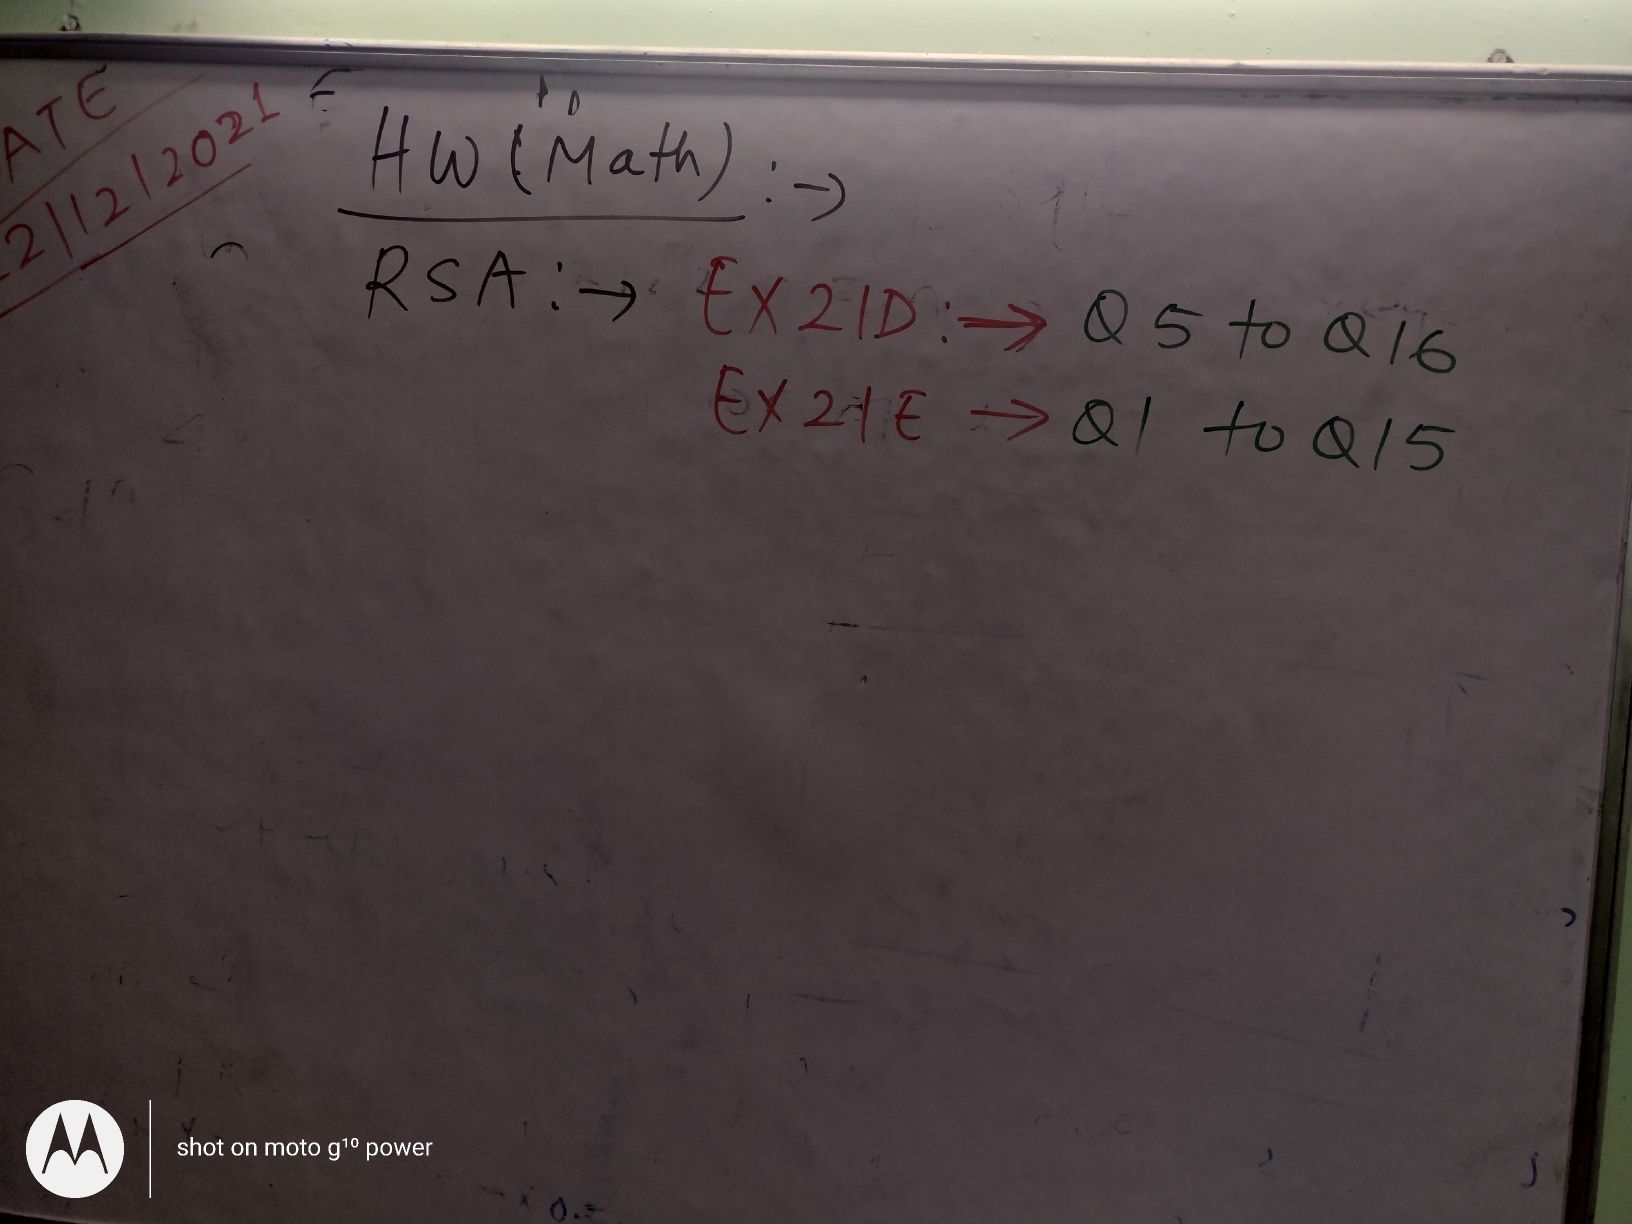 ATE
2/12/2021
HW (Math) :→
RSA :→ EX 21D :→ Q 5 to Q 16
EX 21E → Q1 to Q15
shot on moto g¹⁰ power